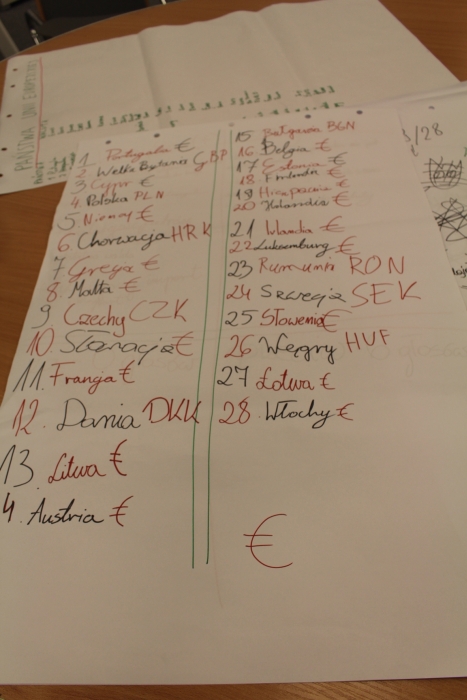 PAŃSTWA UNII EUROPEJSKIEJ
/28
1 Portugalia €
2 Wielka Brytania GBP
3 Cypr €
4. Polska PLN
5. Niemcy €
6 Chorwacja HRK
7 Grecja €
8. Malta €
9 Czechy CZK
10. Słowacja €
11. Francja €
12. Dania DKK
13. Litwa €
4. Austria €
15 Bułgaria BGN
16 Belgia €
17 Estonia €
18. Finlandia €
19 Hiszpania €
20 Holandia €
21 Irlandia €
22 Luksemburg €
23 Rumunia RON
24 Szwecja SEK
25 Słowenia €
26 Węgry HUF
27 Łotwa €
28. Włochy €
€